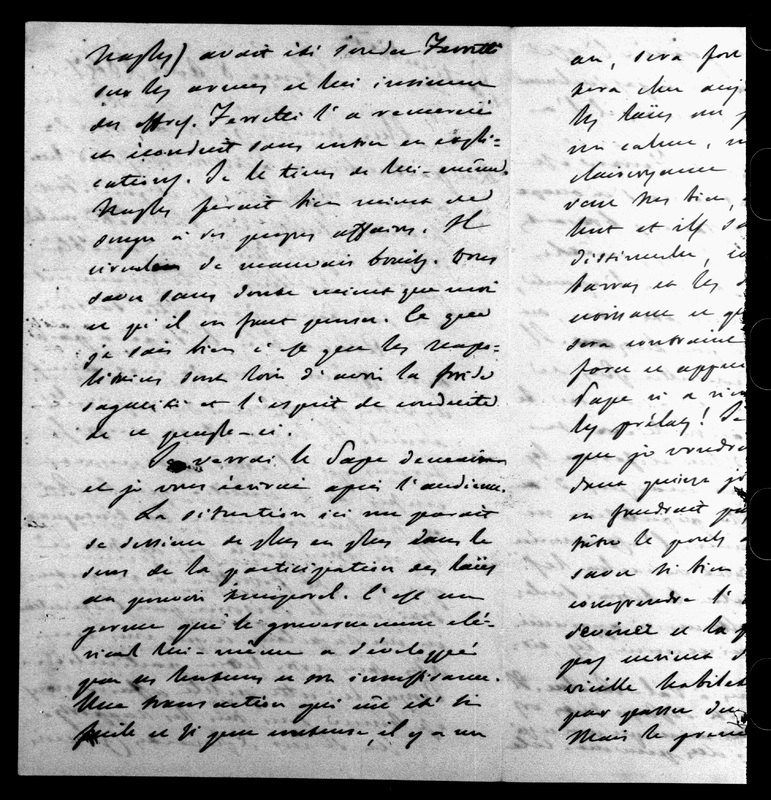 Naples) avait été sonder Ferretti
sur les armes et lui insinuer
des offres. Ferretti l'a remercié
et éconduit sans entrer en expli-
cations. Je le tiens de lui-même.
Naples ferait bien mieux de
songer à ses propres affaires. Il
circule de mauvais bruits. Vous
savez sans doute mieux que moi
ce qu'il en faut penser. Ce que
je sais bien c'est que les napo-
litains sont loin d'avoir la froide
sagacité et l'esprit de conduite
de ce peuple-ci.
Je verrai le Pape demain
et je vous écrirai après l'audience.
La situation ici me parait
se dessiner de plus en plus dans le
sens de la participation des laïcs
au pouvoir temporel. C'est un
germe que le gouvernement clé-
rical lui-même a développé
par ses lenteurs et son insuffisance.
Une transaction qui eût été si
facile et si peu coûteuse, il y a un
an, sera for
sera cher auj
les laïcs ont p
un calme, u
clairvoyance
vont très bien,
but et ils sa
dissimuler,
barras et les
croissant et q
sera contraint
force et appui
Pape n'a rien
les prélats! Je
que je voudra
dans quinze jo
en faudrait pa
être le poids
savez si bien
comprendre l'
deviner et la p
pas moins d
vieille habitude
par passer du
Mais le grand